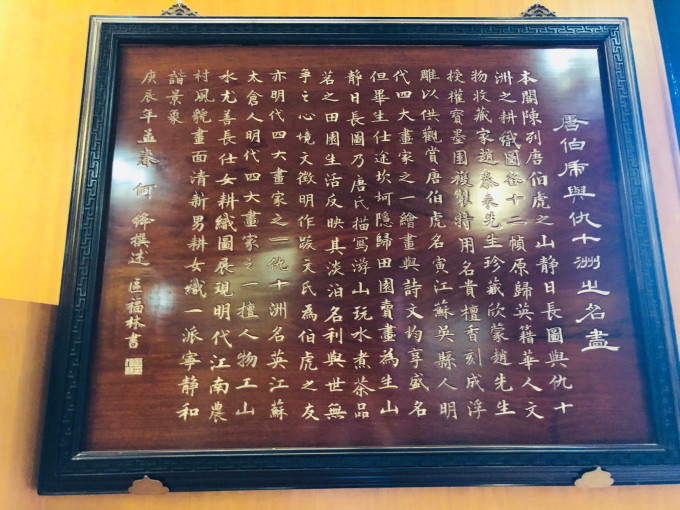 唐伯虎與仇十洲之名畫
本閣陳列唐伯虎之山静日長圖與仇十
洲之耕織圖各十二幀原歸英籍華人文
物收藏家趙泰來先生珍藏欣蒙趙先生
授權寶墨園複製特用名貴檀香刻成浮
雕以供觀賞唐伯虎名寅江蘇吳縣人明
代四大畫家之一繪畫與詩文均享盛名
但畢生仕途坎坷隐歸田園賣畫為生山
静日長圖乃唐氏描寫游山玩水煮茶品
茗之田園生活反映其淡泊名利與世無
争之心境文徵明作跋文氏為伯虎之友
亦明代四大畫家之一仇十洲名英江蘇
太倉人明代四大畫家之一擅人物工山
水尤善長仕女耕織圖展現明代江南農
村風貌畫面清新男耕女織一派寧静和
諧景象
庚辰年孟春 何 撰述 區福林書